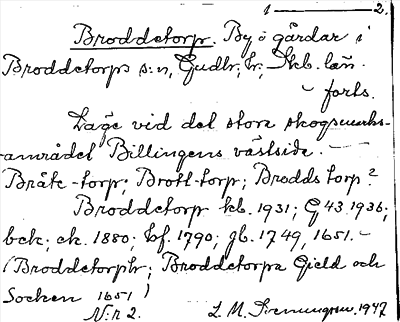 1 — 2.
Broddetorp. By o gårdar i
Broddetorps s:n, Gudh. hr, Skb. län.
~ forts.
Läge vid det stora skogsmarks-
området Billingens västsida. —
Bråte-torp; Brott-torp; Brodds torp?
Broddetorp kb. 1931; G 43 1936;
bek; ek. 1880; hf. 1790; jb. 1749, 1651. —
(Broddetorph; Broddetorpa Gield och
Socken 1651)
N:r 2. L. M. 1947